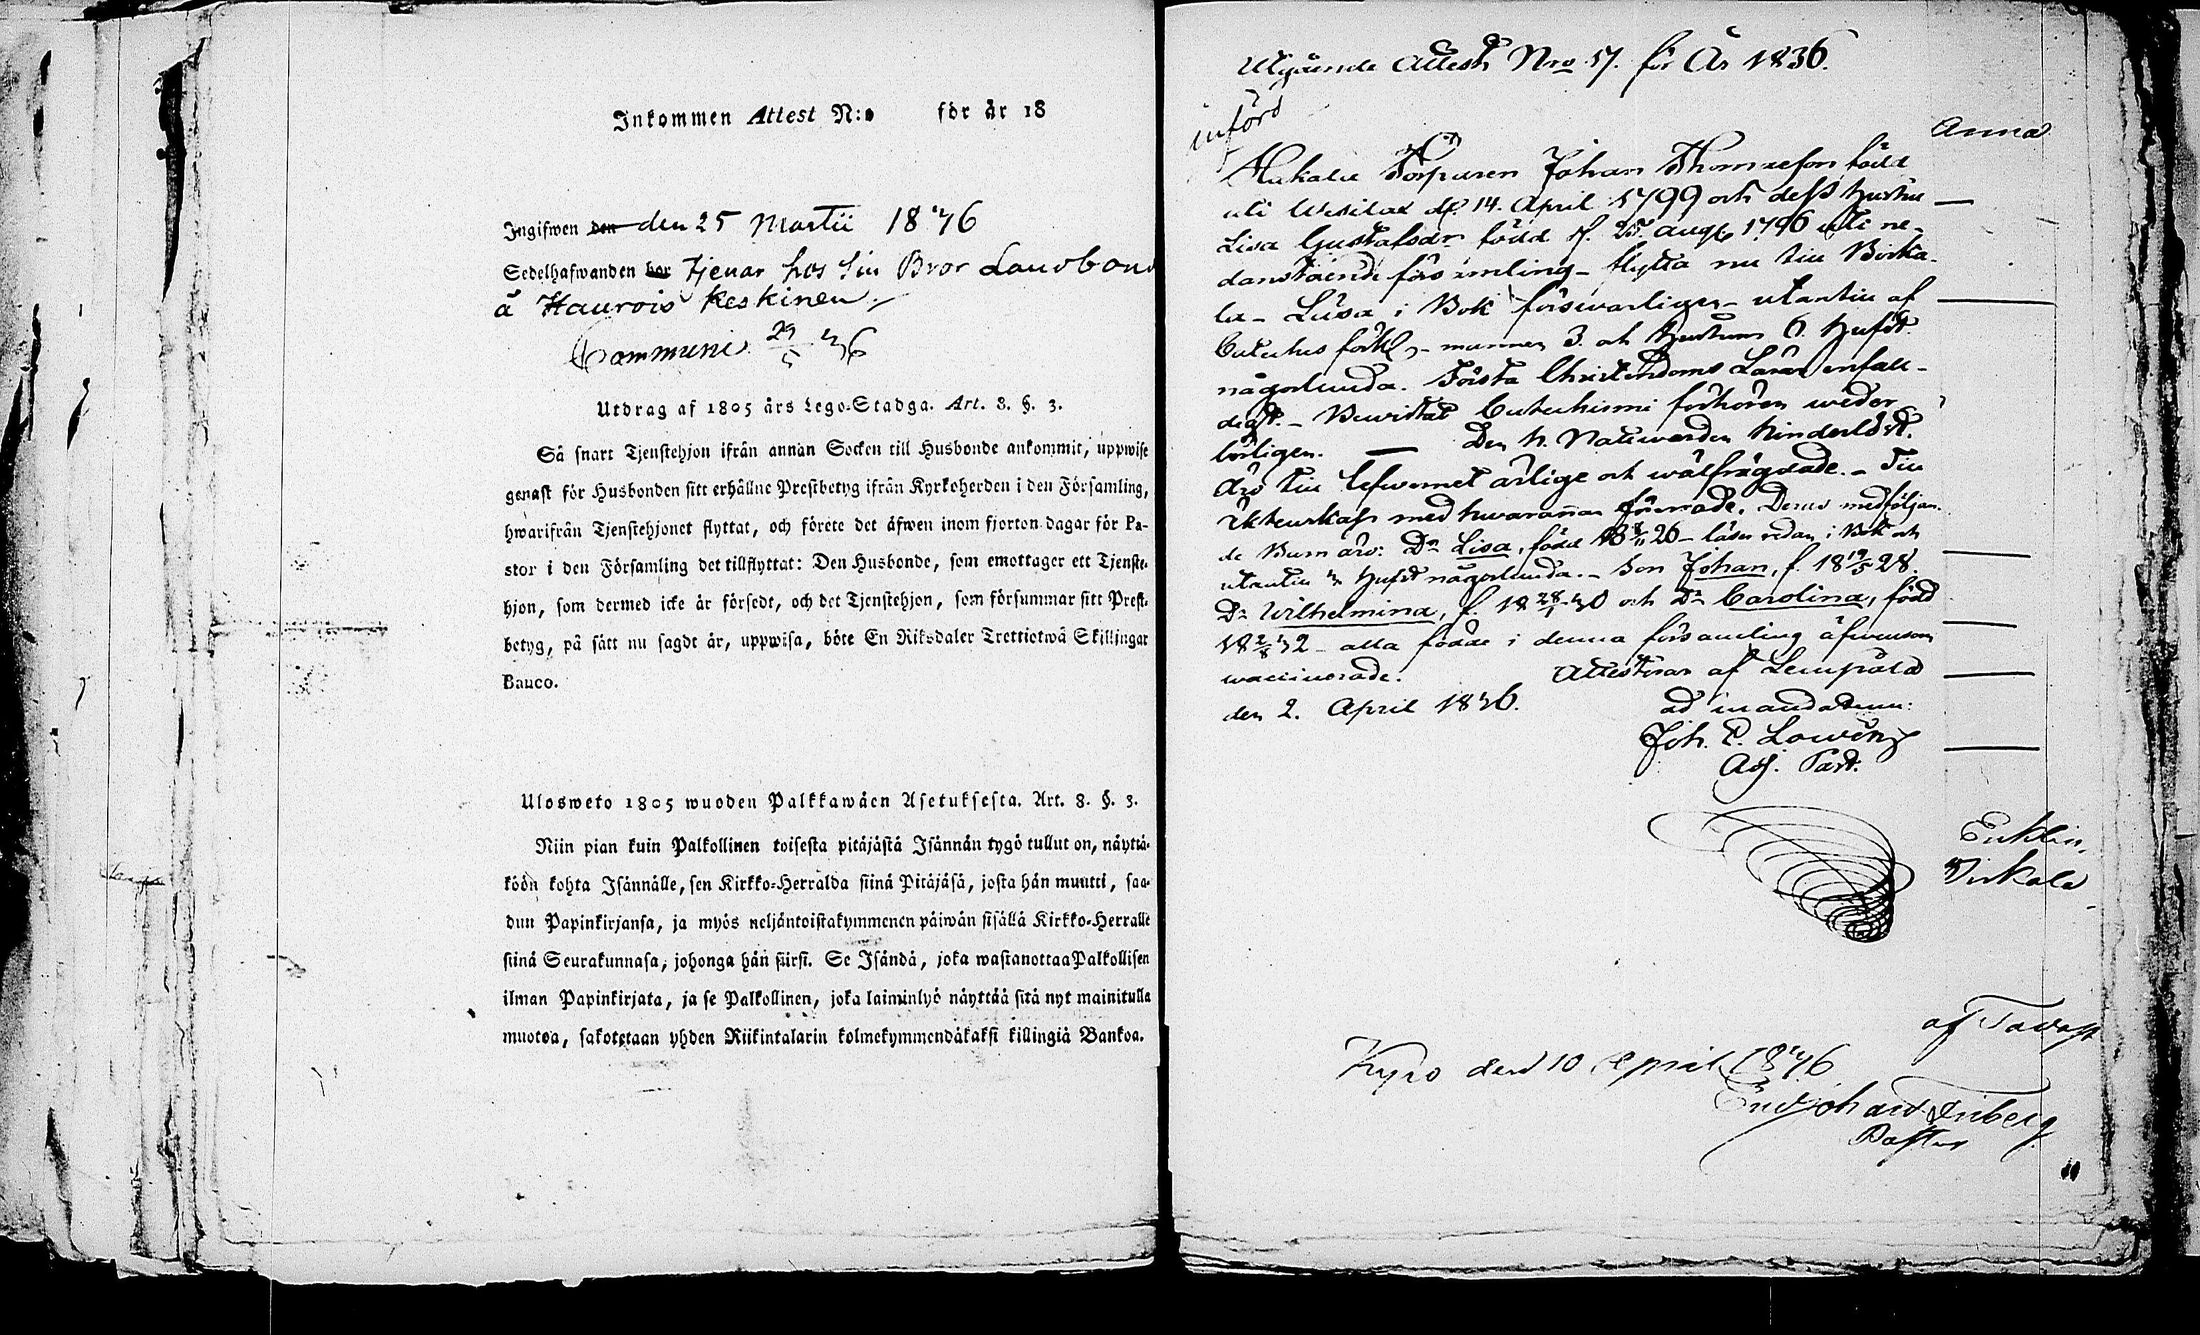 Inkommen Attest N:o för år 18
Ingifwen den den 25 Martii 1836
Sedelhafwanden bor Tjenar hos sin Bror Landbond
å Haurois Keskinen
Communic. 29/5 36
Utdrag af 1805 års Lego-Stadga. Art. 8. §. 3.
Så snart Tjenstehjon ifrån annan Socken till Husbonde ankommit, uppwise
genast för Husbonden sitt erhållne Prestbetyg ifrån Kyrkoherden i den Församling,
hwarifrån Tjenstehjonet flyttat, och förete det äfwen inom fjorton dagar för Pa-
stor i den Församling det tillflyttat: Den Husbonde, som emottager ett Tjenste-
hjon, som dermed icke är försedt, och det Tjenstehjon, som försummar sitt Prest-
betyg, på sätt nu sagdt är, uppwisa, böte En Riksdaler Trettiotwå Skillingar
Banco.
Ulosweto 1805 wuoden Palkkawäen Asetuksesta. Art. 8. §. 3.
Niin pian kuin Palkollinen toisesta pitäjästä Isännän tygö tullut on, näyttä-
köön kohta Isännälle, sen Kirkko-Herralda siinä Pitäjäsä, josta hän muutti, saa-
dun Papinkirjansa, ja myös neljäntoistakymmenen päiwän sisällä Kirkko-Herralle
siinä Seurakunnasa, johonga hän siirsi. Se Isändä, joka wastanottaa Palkollisen
ilman Papinkirjata, ja se Palkollinen, joka laiminlyö näyttää sitä nyt mainitulla
muotoa, sakotetaan yhden Riikintalarin kolmekymmendäkaksi killingiä Bankoa.
Utgående Attest Nro 57. för År 1836.
införd
Anna
Torparen Johan Thomasson född
uti Wesilax d. 14. April 1799 och dess hustru
Lisa Gustafsdr född d. 25. aug. 1796 uti ne-
danstående församling - flytta nu till Birka-
la - Läsa i Bok försvarligen - utantill af
Catechis förkl. - mannen 3. och hustrun 6. Hufst
någorlunda. Förstå Christendoms Läran enfall-
digt. - Bewistat Catechismi förhören weder-
börligen. Den h. Nattwarden hinderlöst.
Äro till lefwernet ärlige och wälfrägdade. - Till
äktenskap med hwarannan förenade. Deras medföljan-
de Barn äro: Dr Lisa, född 18 8/11 26 - läser redan i Bok och
utantill 2 Hufst någorlunda. - Son Johan, f. 18 19/5 28.
Dr Wilhelmina, f. 18 28/1 30 och Dr Carolina, född
18 2/8 32 - alla födde i denna församling äfwensom
waccinerade. Attesterar af Lempälä
den 2. April 1836. ad mandatum:
Joh. E. Lowén
Adj. Past.
Birkala
af Tavast
Kyro den 10 April 1836
Pastor